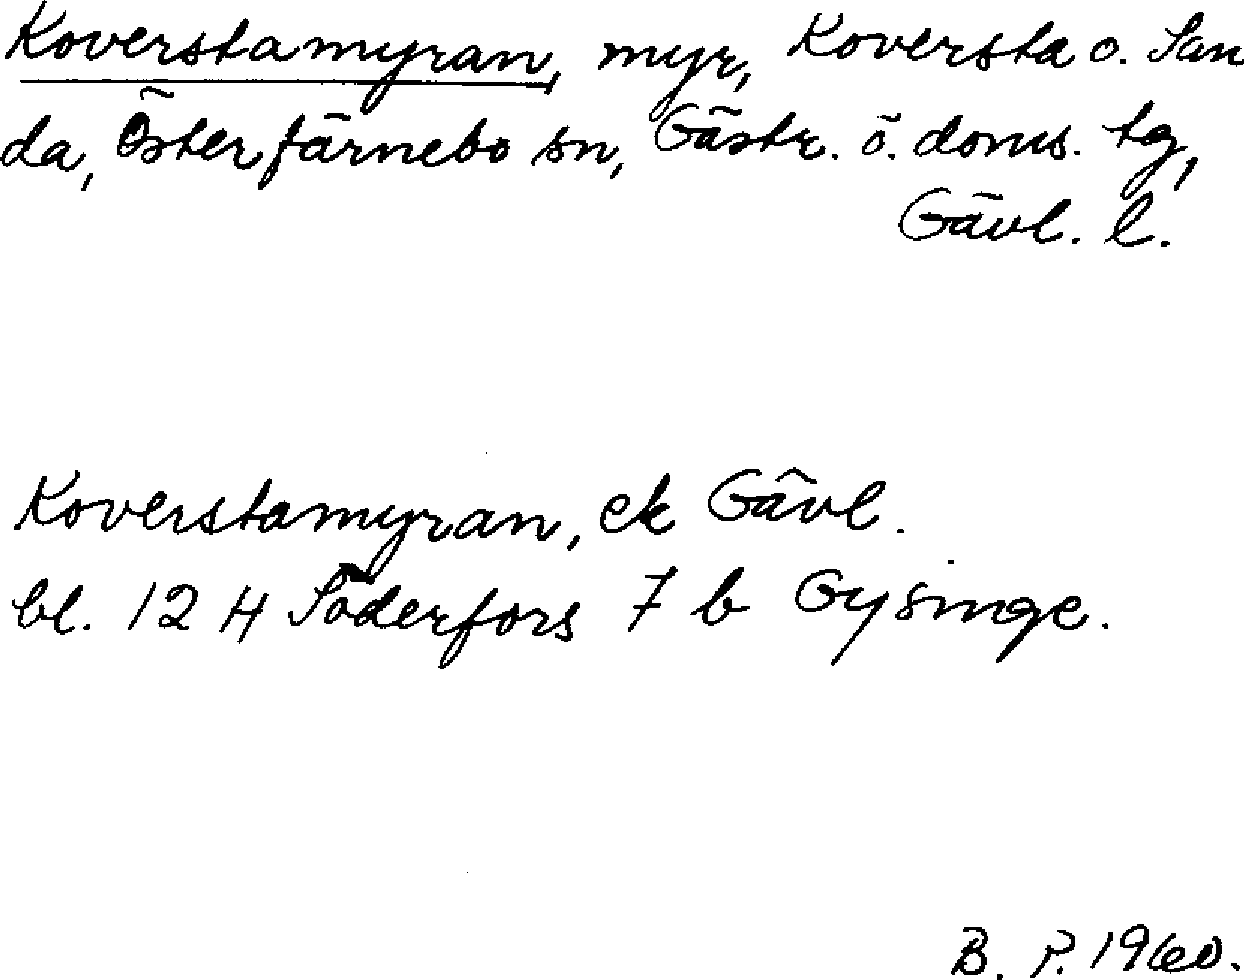 Koverstamyran, myr, Koversta o. San
da, Österfärnebo sn, Gästr. ö. doms. tg,
Gävl. l.
Koverstamyran, ek Gävl.
bl. 12 H Söderfors 7 b Gysinge.
B. P. 1960.